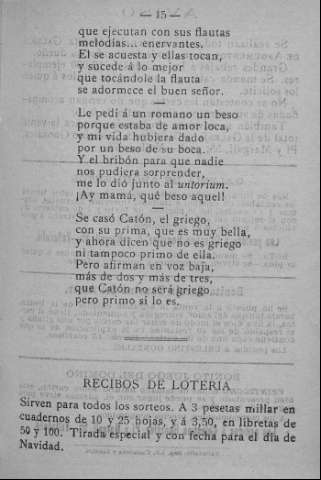 — 15 —
que ejecutan con sus flautas
melodías... enervantes.
El se acuesta y ellas tocan,
y sucede á lo mejor
que tocándole la flauta
se adormece el buen señor.
—
Le pedí á un romano un beso
porque estaba de amor loca,
y mi vida hubiera dado
por un beso de su boca.
Y el bribón para que nadie
nos pudiera sorprender,
me lo dió junto al untorium.
¡Ay mamá, qué beso aquel!
—
Se casó Catón, el griego,
con su prima, que es muy bella,
y ahora dicen que no es griego
ni tampoco primo de ella.
Pero afirman en voz baja,
más de dos y más de tres,
que Catón no será griego
pero primo sí lo es.
RECIBOS DE LOTERIA
Sirven para todos los sorteos. A 3 pesetas millar en
cuadernos de 10 y 25 hojas, y á 3,50, en libretas de
50 y 100. Tirada especial y con fecha para el día de
Navidad.